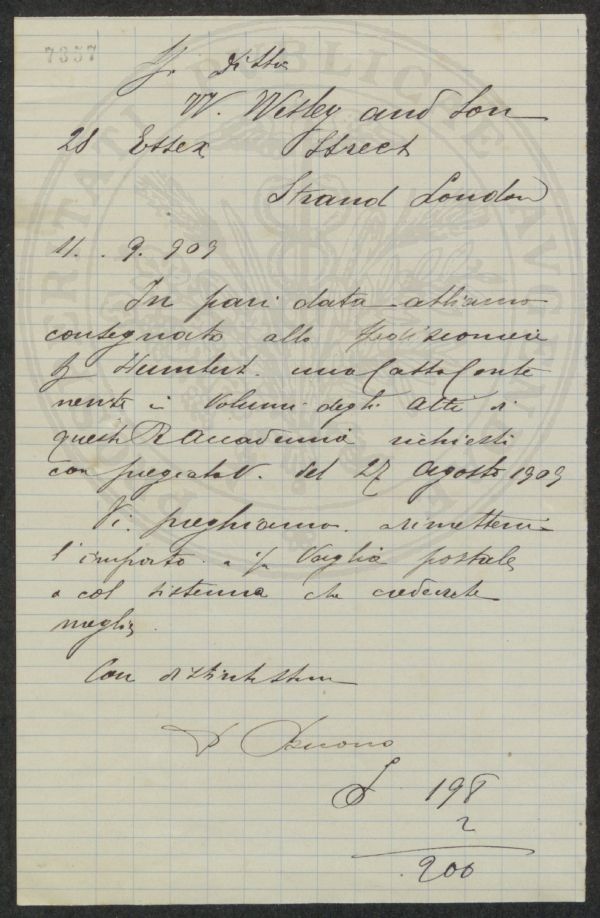 7357
Ditta
W. Wesley and Son
28 Essex Street
Strand London
11. 9. 909
In pari data abbiamo
consegnato allo spedizioniere
Humbert. una Cassa Conte
nente i Volumi degli Atti di
questa R Accademia richiesti
con pregiata V. del 27 Agosto 1909
Vi preghiamo rimetterci
l'importo a Vaglia postale
o col sistema che crederete
meglio
Con distinta stima
£ 198
2
200